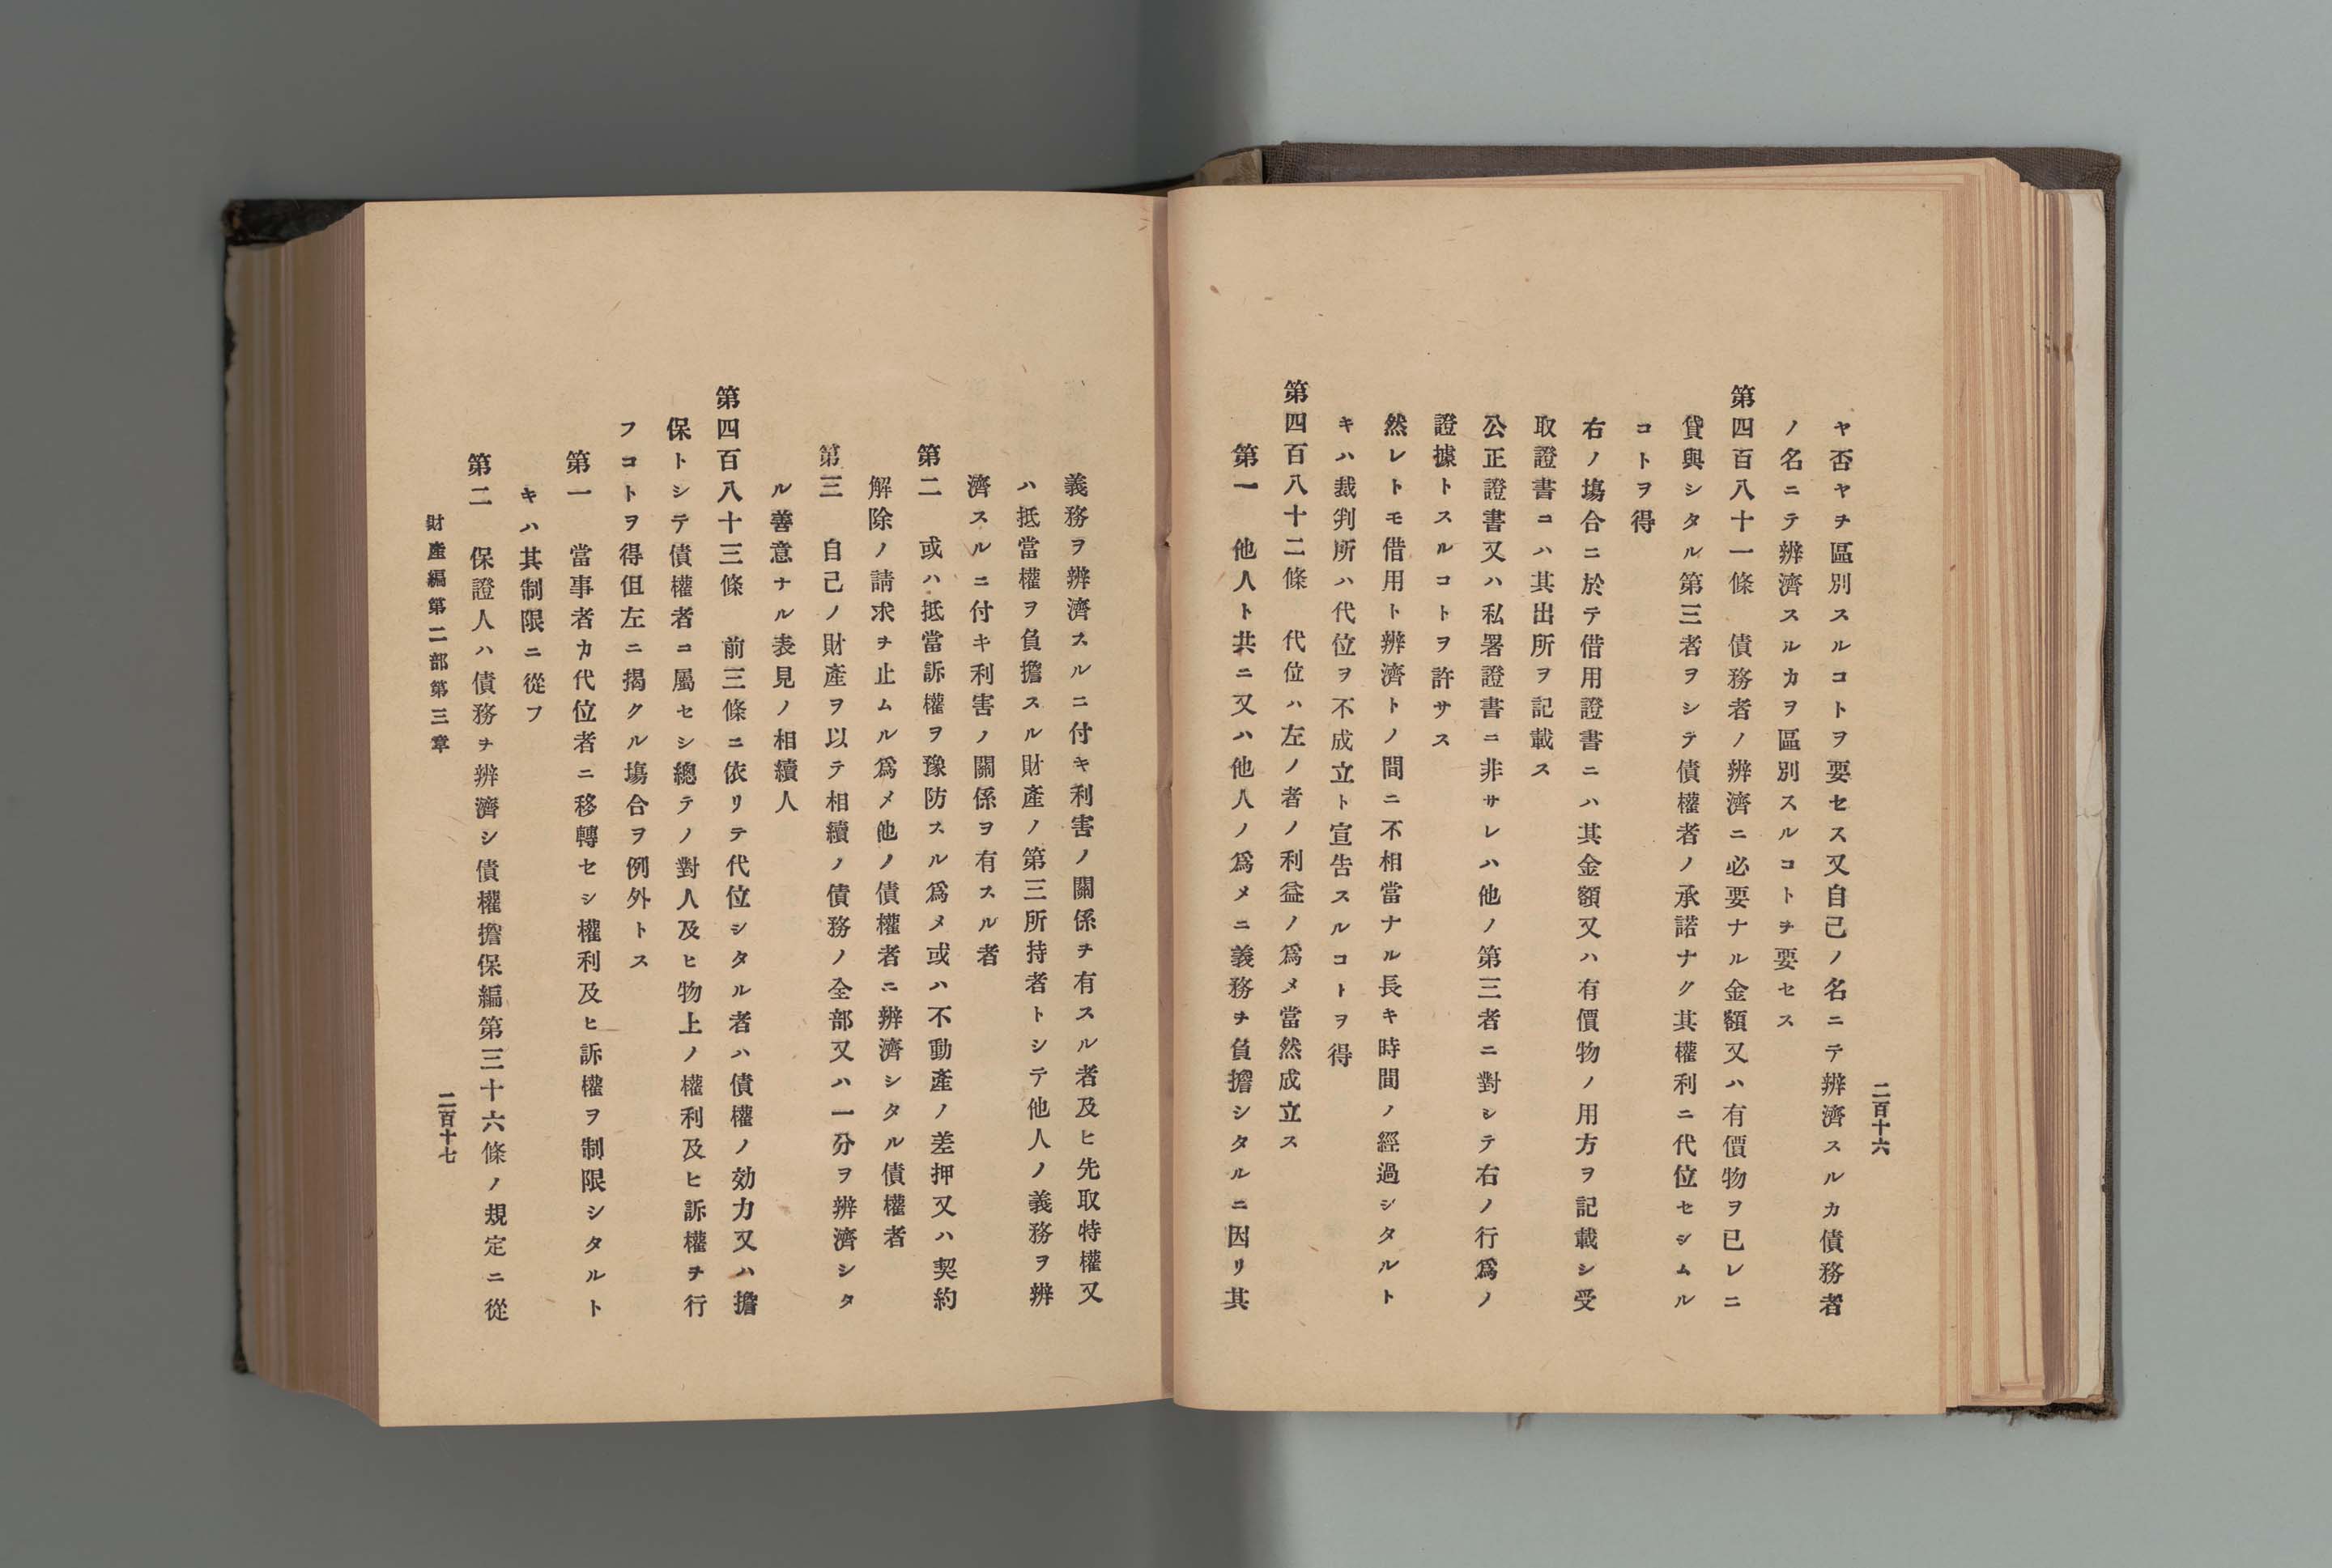 二百十六
ヤ否ヤヲ區別スルコトヲ要セス又自己ノ名ニテ辨濟スルカ債務者
ノ名ニテ辨濟スルカヲ區別スルコトヲ要セス
第四百八十一條　債務者ノ辨濟ニ必要ナル金額又ハ有價物ヲ已レニ
貸與シタル第三者ヲシテ債權者ノ承諾ナク其權利ニ代位セシムル
コトヲ得
右ノ塲合ニ於テ借用證書ニハ其金額又ハ有價物ノ用方ヲ記載シ受
取證書ニハ其出所ヲ記載ス
公正證書又ハ私署證書ニ非サレハ他ノ第三者ニ對シテ右ノ行爲ノ
證據トスルコトヲ許サス
然レトモ借用ト辨濟トノ間ニ不相當ナル長キ時間ノ經過シタルト
キハ裁判所ハ代位ヲ不成立ト宣告スルコトヲ得
第四百八十二條　代位ハ左ノ者ノ利益ノ爲メ當然成立ス
第一　他人ト共ニ又ハ他人ノ爲メニ義務ヲ負擔シタルニ因リ其
義務ヲ辨濟スルニ付キ利害ノ關係ヲ有スル者及ヒ先取特權又
ハ抵當權ヲ負擔スル財產ノ第三所持者トシテ他人ノ義務ヲ辨
濟スルニ付キ利害ノ關係ヲ有スル者
第二　或ハ抵當訴權ヲ豫防スル爲メ或ハ不動產ノ差押又ハ契約
解除ノ請求ヲ止ムル爲メ他ノ債權者ニ辨濟シタル債權者
第三　自己ノ財產ヲ以テ相續ノ債務ノ全部又ハ一分ヲ辨濟シタ
ル善意ナル表見ノ相續人
第四百八十三條　前三條ニ依リテ代位シタル者ハ債權ノ効力又ハ擔
保トシテ債權者ニ屬セシ總テノ對人及ヒ物上ノ權利及ヒ訴權ヲ行
フコトヲ得伹左ニ揭クル塲合ヲ例外トス
第一　當事者カ代位者ニ移轉セシ權利及ヒ訴權ヲ制限シタルト
キハ其制限ニ從フ
第二　保證人ハ債務ヲ辨濟シ債權擔保編第三十六條ノ規定ニ從
財產編第二部第三章
二百十七